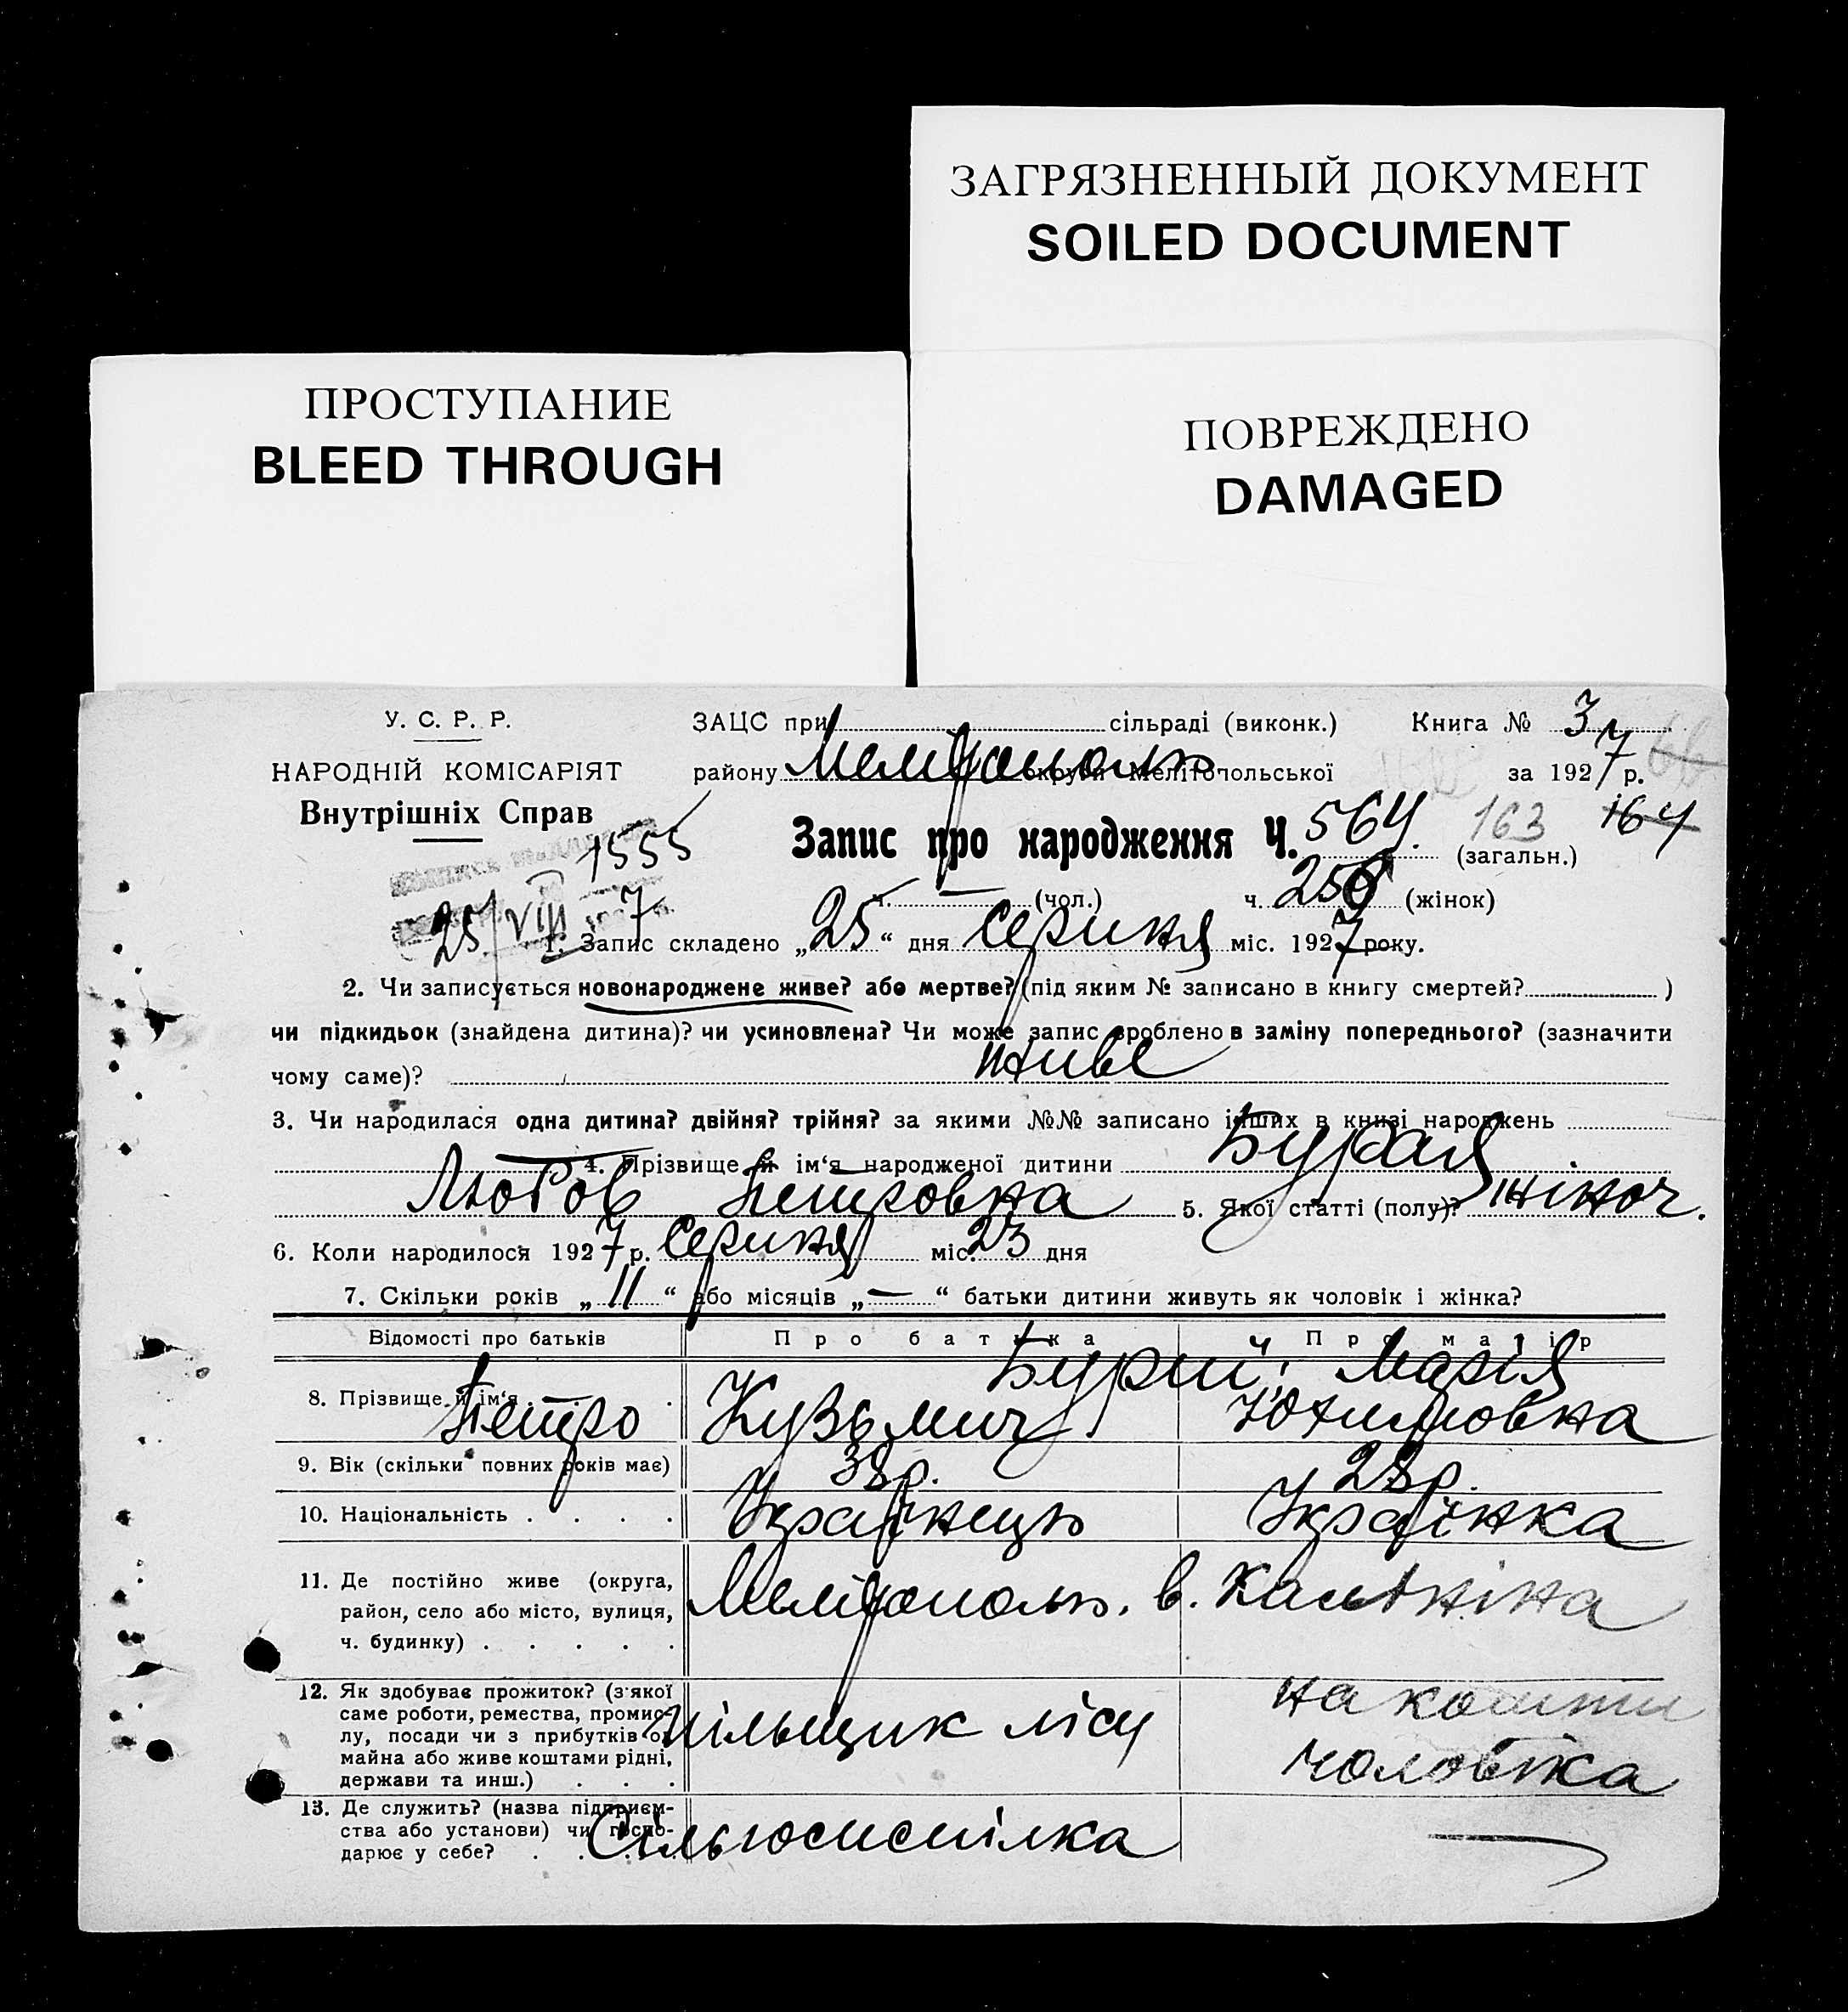 ЗАГРЯЗНЕННЫЙ ДОКУМЕНТ
SOILED DOCUMENT
ПРОСТУПАНИЕ
BLEED THROUGH
ПОВРЕЖДЕНО
DAMAGED
У. С. Р. Р.
НАРОДНІЙ КОМІСАРІЯТ
Внутрішніх Справ
ЗАЦС при сільраді (виконк.) Книга № 3
району Мелітополь округи Мелітопольської за 1927 р. 66
1555
Запис про народження Ч. 564. (загальн.) 163 164
ч. — (чол.) ч. 250 (жінок)
25/VIII 7
1. Запис складено „25“ дня Серпня міс. 1927 року.
2. Чи записується новонароджене живе? або мертве? (під яким № записано в книгу смертей? )
чи підкидьок (знайдена дитина)? чи усиновлена? Чи може запис зроблено в заміну попереднього? (зазначити
чому саме)? живе
3. Чи народилася одна дитина? двійня? трійня? за якими №№ записано інших в книзі народжень
4. Прізвище й ім‘я народженої дитини Бурая
Любов Петровна 5. Якої статті (полу)? жіноч.
6. Коли народилося 1927 р. Серпня міс. 23 дня
7. Скільки років „11“ або місяців „—“ батьки дитини живуть як чоловік і жінка?
Відомості про батьків Про батька Про матір
8. Прізвище й ім‘я . Бурий, Марія
Петро Кузьмич Юхимовна
9. Вік (скільки повних років має) 38р. 28р.
10. Національність . . . . Українець Українка
11. Де постійно живе (округа,
район, село або місто, вулиця,
ч. будинку) . . . . .
Мелітополь. в. Калініна
12. Як здобуває прожиток? (з якої
саме роботи, ремества, промис-
лу, посади чи з прибутків од
майна або живе коштами рідні,
держави та инш.) . . .
пільщик лісу
на кошти
чоловіка
13. Де служить? (назва підприєм-
ства або установи) чи госпо-
дарює у себе? . . .
—